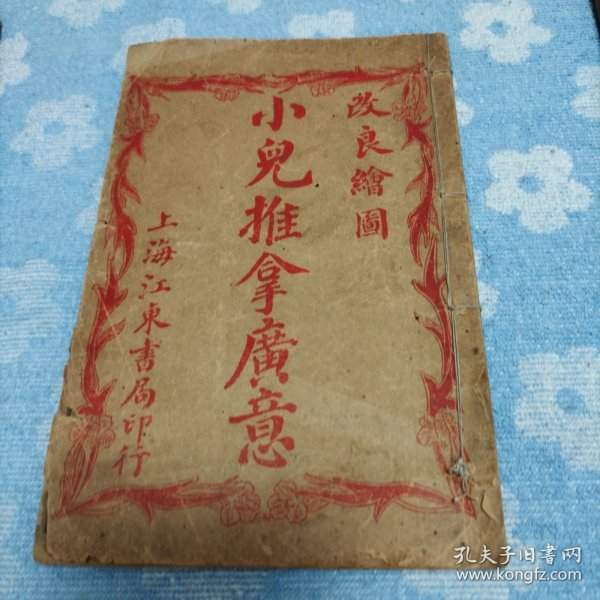 改良繪圖
小兒推拿廣意
上海江東書局印行
孔夫子旧书网
www.kongfz.com